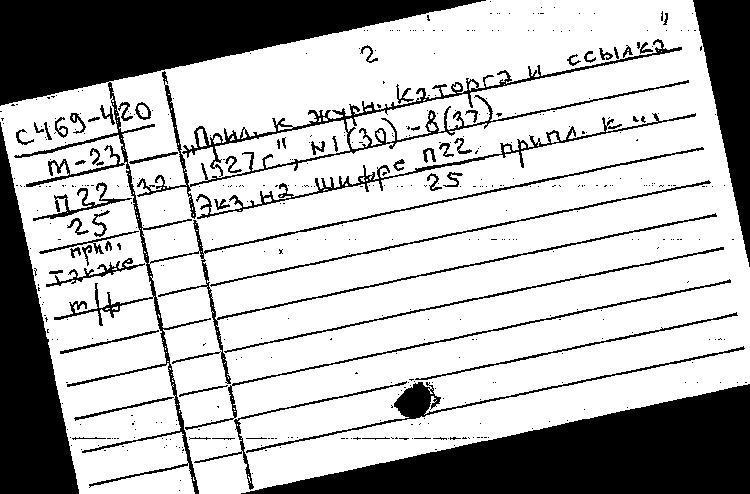 2
С469-420
т-23
П22
25
прил.
также
т/ф
32
„Прил. к журн. „Каторга и ссылка"
1927г", N1(30)-8(37).
Экз. на шифре П22 припл. к
25